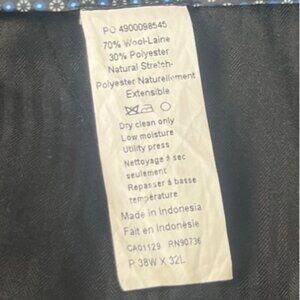 PO 4900098545
70% Wool-Laine
30% Polyester
Natural Stretch-
Polyester Naturellement
Extensible
Dry clean only
Low moisture
Utility press
Nettoyage à sec
seulement
Repasser à basse
température
Made in Indonesia
Fait en Indonésie
CA01129 RN90736
P 38W X 32L